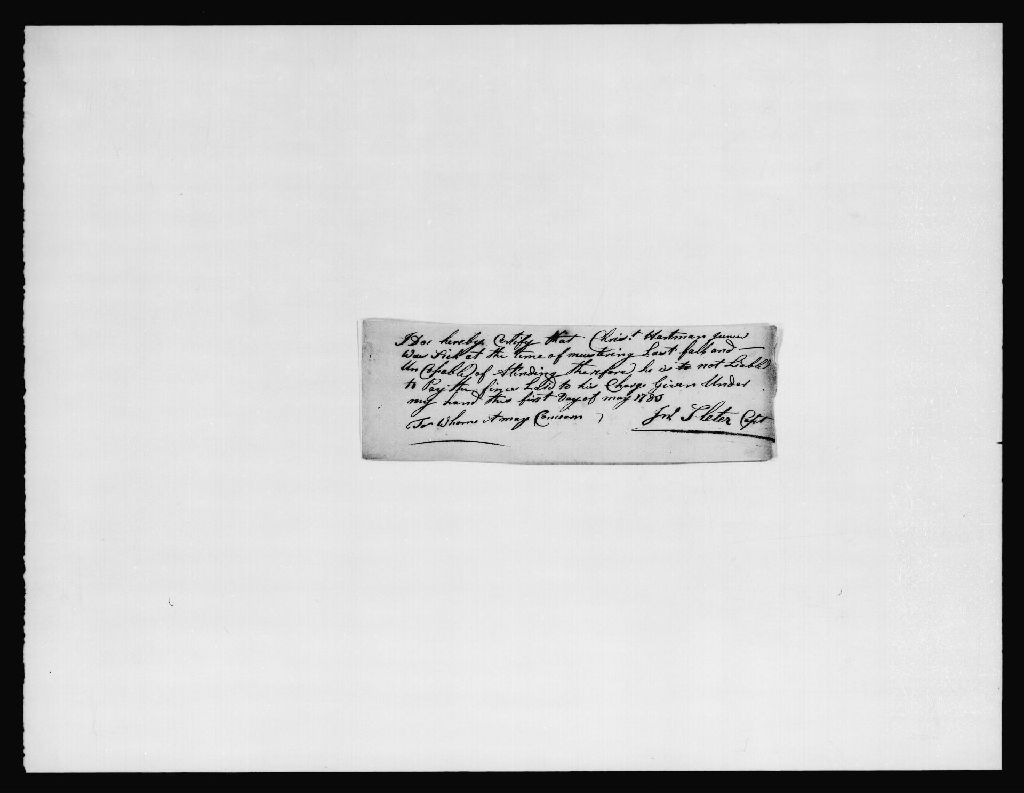 I Doe hereby Certify that Chris.t Hartman junr
Was Sick at the time of mustering Last fall and
Un Capable of Attending therefore he is to not Liable
to Pay the fine Laid to his Charge Given Under
my hand this first Day of may 1780
To Whome it may Concern
Jno Capt